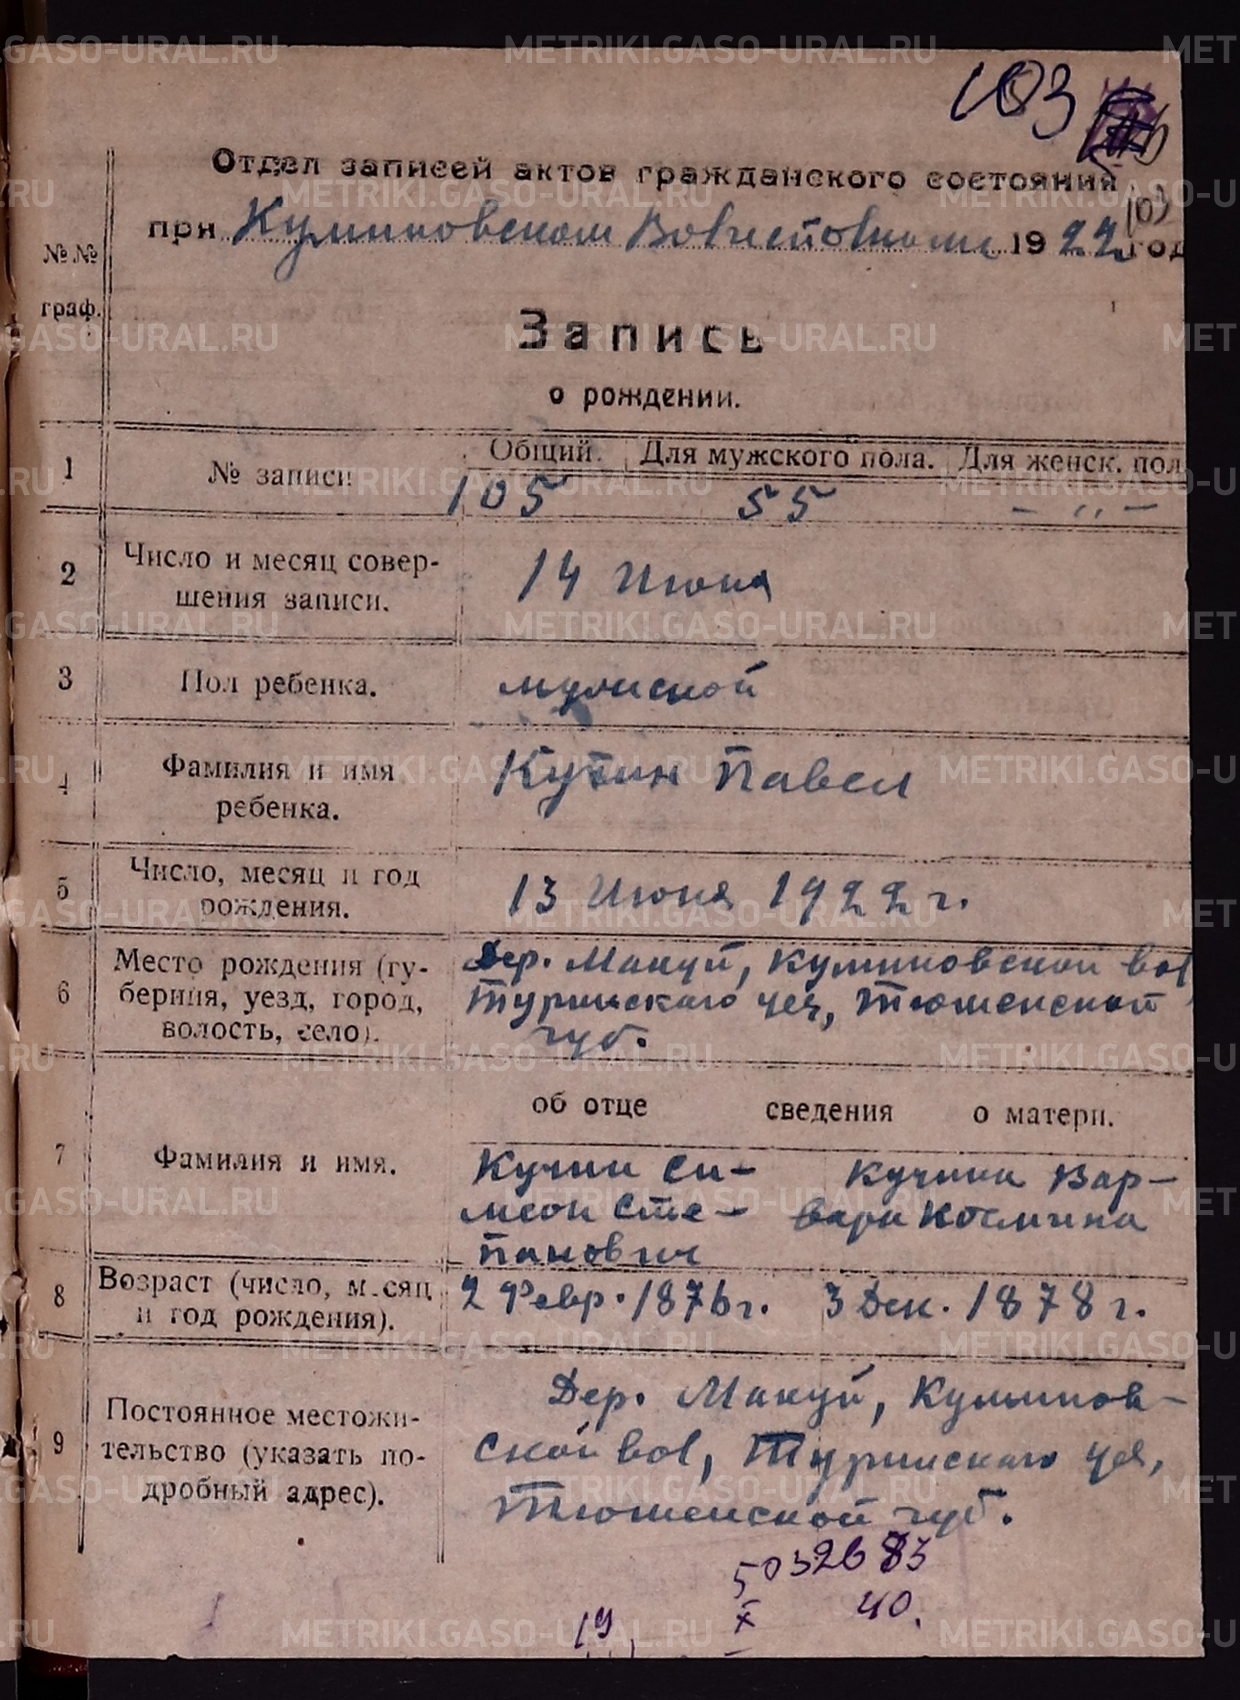 103
Отдел записей актов гражданского состояния
при Куминовском Вовисполкоме 1922 год
103
№№
граф.
Запись
о рождении.
Общий. Для мужского пола. Для женск. пол
1 № записи 105 55 – ,, –
2 Число и месяц совер-
шения записи. 14 Июня
3 Пол ребенка. мужской
4 Фамилия и имя
ребенка. Кучин Павел
5 Число, месяц и год
рождения. 13 Июня 1922 г.
6 Место рождения (гу-
берния, уезд, город,
волость, село).
Дер. Макуй, Куминовской вол
Туринского уез, Тюменской
губ.
об отце сведения о матери.
7 Фамилия и имя.
Кучин Си- Кучина Вар-
меон Сте- вара Космина
панович
8 Возраст (число, месяц
и год рождения).
2 Февр. 1876 г. 3 Дек. 1878 г.
9 Постоянное местожи-
тельство (указать по-
дробный адрес).
Дер. Макуй, Куминов-
ской вол, Туринского уез,
Тюменской губ.
5032683
X 40.
19
METRIKI.GASO-URAL.RU